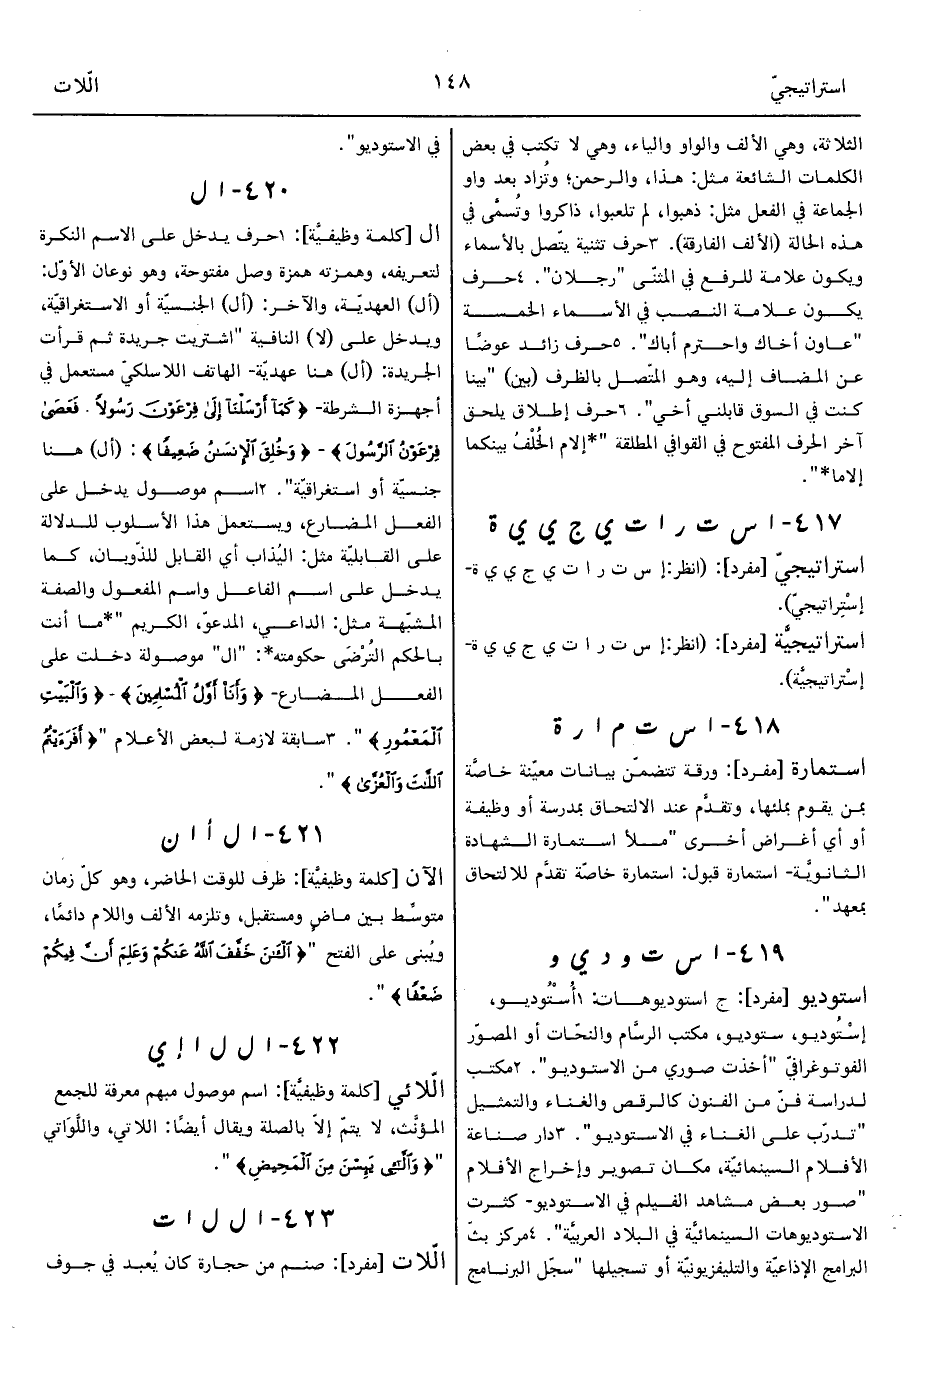 استراتيجيّ
١٤٨
الّلات
الثلاثة، وهي الألف والواو والياء، وهي لا تكتب في بعض
الكلمات الشائعة مثل: هذا، والرحمن؛ وتُزاد بعد واو
الجماعة في الفعل مثل: ذهبوا، لم تلعبوا، ذاكروا وتُسمَّى في
هذه الحالة (الألف الفارقة). ٣حرف تثنية يتّصل بالأسماء
ويكون علامة للرفع في المثنّى "رجلان". ٤حرف
يكون علامة النصب في الأسماء الخمسة
"عاون أخاك واحترم أباك". ٥حرف زائد عوضًا
عن المضاف إليه، وهو المتّصل بالظرف (بين) "بينا
كنت في السوق قابلني أخي". ٦حرف إطلاق يلحق
آخر الحرف المفتوح في القوافي المطلقة "*إلام الخُلْفُ بينكما
إلاما*".
٤١٧- ا س ت ر ا ت ي ج ي ي ة
استراتيجيّ [مفرد]: (انظر: إ س ت ر ا ت ي ج ي ي ة-
إسْتِراتيجيّ).
استراتيجيَّة [مفرد]: (انظر: إ س ت ر ا ت ي ج ي ي ة-
إسْتِراتيجيَّة).
٤١٨- ا س ت م ا ر ة
استمارة [مفرد]: ورقة تتضمّن بيانات معيّنة خاصَّة
بمن يقوم بملئها، وتقدَّم عند الالتحاق بمدرسة أو وظيفة
أو أي أغراض أخرى "ملأ استمارة الشهادة
الثانويّة- استمارة قبول: استمارة خاصّة تقدَّم للالتحاق
بمعهد".
٤١٩- ا س ت و د ي و
استوديو [مفرد]: ج استوديوهات: ١أُسْتُوديو،
إسْتُوديو، ستوديو، مكتب الرسَّام والنحّات أو المصوّر
الفوتوغرافيّ "أخذت صوري من الاستوديو". ٢مكتب
لدراسة فنّ من الفنون كالرقص والغناء والتمثيل
"تدرّب على الغناء في الاستوديو". ٣دار صناعة
الأفلام السينمائيّة، مكان تصوير وإخراج الأفلام
"صور بعض مشاهد الفيلم في الاستوديو- كثرت
الاستوديوهات السينمائيَّة في البلاد العربيَّة". ٤مركز بثّ
البرامج الإذاعيّة والتليفزيونيّة أو تسجيلها "سجّل البرنامج
في الاستوديو".
٤٢٠- ا ل
ال [كلمة وظيفيَّة]: ١حرف يدخل على الاسم النكرة
لتعريفه، وهمزته همزة وصل مفتوحة، وهو نوعان الأوّل:
(أل) العهديّة، والآخر: (أل) الجنسيّة أو الاستغراقيّة،
ويدخل على (لا) النافية "اشتريت جريدة ثم قرأت
الجريدة: (أل) هنا عهديّة- الهاتف اللاسلكيّ مستعمل في
أجهزة الشرطة- ﴿ كَمَآ أَرْسَلْنَآ إِلَىٰ فِرْعَوْنَ رَسُولاً . فَعَصَىٰ
فِرْعَوْنُ ٱلرَّسُولَ ﴾ - ﴿ وَخُلِقَ ٱلْإِنسَـٰنُ ضَعِيفًا ﴾ : (أل) هنا
جنسيّة أو استغراقيّة". ٢اسم موصول يدخل على
الفعل المضارع، ويستعمل هذا الأسلوب للدلالة
على القابليّة مثل: اليُذاب أي القابل للذّوبان، كما
يدخل على اسم الفاعل واسم المفعول والصفة
المشبّهة مثل: الداعي، المدعوّ، الكريم "*ما أنت
بالحكم التُرْضَى حكومته*: "ال" موصولة دخلت على
الفعل المضارع- ﴿ وَأَنَا۠ أَوَّلُ ٱلْمُسْلِمِينَ ﴾ - ﴿ وَٱلْبَيْتِ
ٱلْمَعْمُورِ ﴾ ". ٣سابقة لازمة لبعض الأعلام "﴿ أَفَرَءَيْتُمُ
ٱللَّـٰتَ وَٱلْعُزَّىٰ ﴾ ".
٤٢١- ا ل أ ا ن
الآن [كلمة وظيفيَّة]: ظرف للوقت الحاضر، وهو كلّ زمان
متوسِّط بين ماضٍ ومستقبل، وتلزمه الألف واللام دائمًا،
ويُبنى على الفتح "﴿ ٱلْـَٔـٰنَ خَفَّفَ ٱللَّهُ عَنكُمْ وَعَلِمَ أَنَّ فِيكُمْ
ضَعْفًا ﴾ ".
٤٢٢- ا ل ل ا إ ي
الّلائي [كلمة وظيفيَّة]: اسم موصول مبهم معرفة للجمع
المؤنّث، لا يتمّ إلاّ بالصلة ويقال أيضًا: اللاتي، واللَّوَاتي
"﴿ وَٱلَّـٰٓـِٔى يَئِسْنَ مِنَ ٱلْمَحِيضِ ﴾ ".
٤٢٣- ا ل ل ا ت
الّلات [مفرد]: صنم من حجارة كان يُعبد في جوف